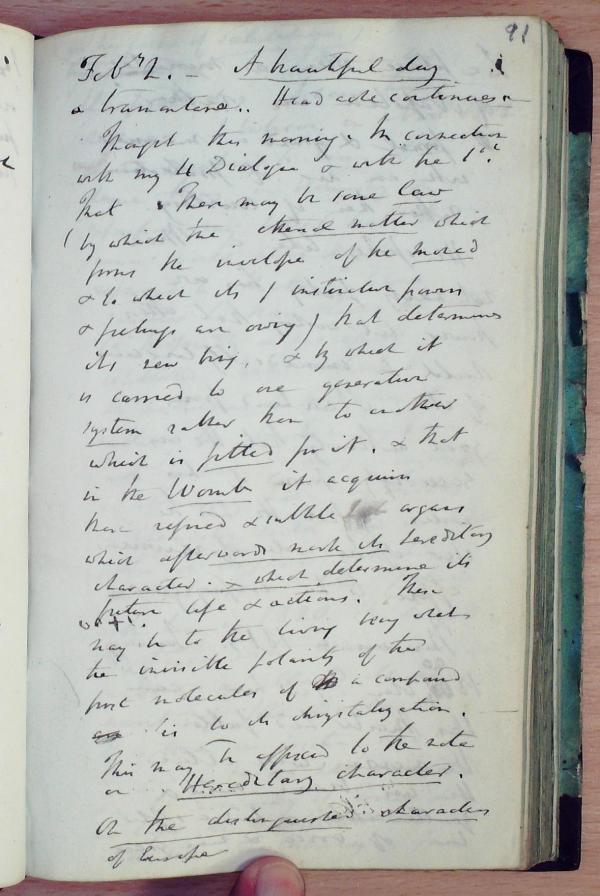 91
Feby 2. – A beautiful day
a tramontane.. Head ache continues
Thought this morning. In connection
with my 4 Dialogue & with the 1st.
That There may be some law
(by which the etherial matter which
forms the envelope of the monad
& to which its instinctive powers
& feelings are owing) that determines
its new being, & by which it
is carried to one generative
system rather than to another
which is fitted for it. & that
in the Womb it acquires
these refined & subtle organs
which afterwards mark its hereditary
character. & which determine its
future life & actions. These
may be to the living being what
the invisible polarity of the
first molecules of a compound
is to its chrystalization.
This may be affixed to the note
on Hereditary character.
On the distinguished characters
of Europe